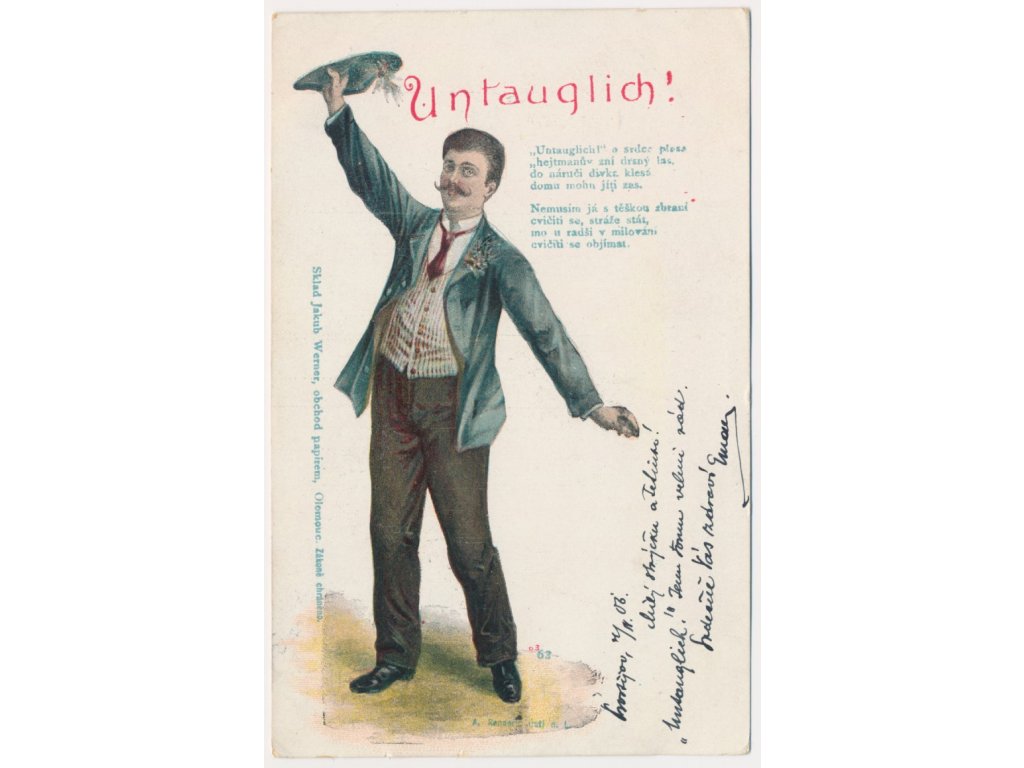 Untauglich!
„Untauglich!" a srdce plesá
„hejtmanův zní drsný las,
do náručí dívka klesá
domů mohu jíti zas.
Nemusím já s těškou zbraní
cvičiti se, stráže stát,
mo u radši v milování
cvičiti se objímat.
Sklad Jakub Werner, obchod papírem, Olomouc. Zákoně chráněno.
63
63
A.
Prostějov, /IV. 06.
Milý strýčku a tetinko!
„Untauglich!" Jsem tomu velmi rád.
Srdečně Vás zdraví